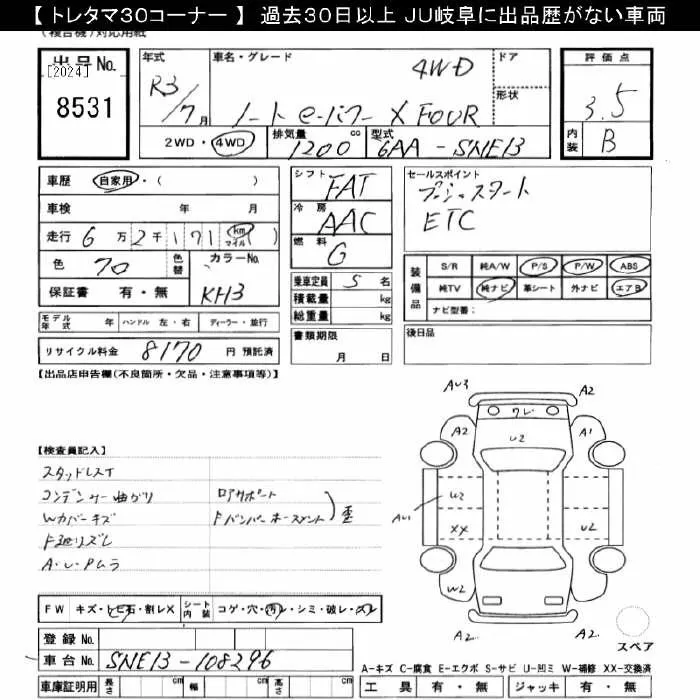 【 トレタマ30コーナー 】 過去30日以上 JU岐阜に出品歴がない車両
出品No.
[2024]
8531
年式
R3/7月
車名・グレード
4WD
ノート e-パワー X FOUR
ドア
形状
評価点
3.5
内装 B
2WD・4WD
排気量 1200 cc
型式 6AA-SNE13
車歴 自家用・( )
車検 年 月
走行 6万2千171 km マイル ( )
色 70 色替
カラーNo. KH3
保証書 有・無
シフト FAT
冷房 AAC
燃料 G
乗車定員 5 名
積載量 kg
総重量 kg
書類期限
月 日
セールスポイント
プッシュスタート
ETC
装備品
S/R 純A/W P/S P/W ABS
純TV 純ナビ 革シート 外ナビ エアB
ナビ型番:
後日品
モデル年式 年 ハンドル 左・右 ディーラー・並行
リサイクル料金 8170 円 預託済
【出品店申告欄(不良箇所・欠品・注意事項等)】
【検査員記入】
スタッドレスT
コンデンサー曲ガリ ロアサポート
Wカバーキズ Fバンパーホースメント 歪
F廻リズレ
A・U・Pムラ
AU3 A2
ワレ
A2 U2 A1
U2
AU1 XX U2
W2
A2 A2
スペア
FW キズ・トビ石・割レX シート内装 コゲ・穴・汚レ・シミ・破レ・スレ
登録No.
車台No. SNE13-108296
車庫証明用 長さ cm 幅 cm 高さ cm
A-キズ C-腐食 E-エクボ S-サビ U-凹ミ W-補修 XX-交換済
工具 有・無 ジャッキ 有・無